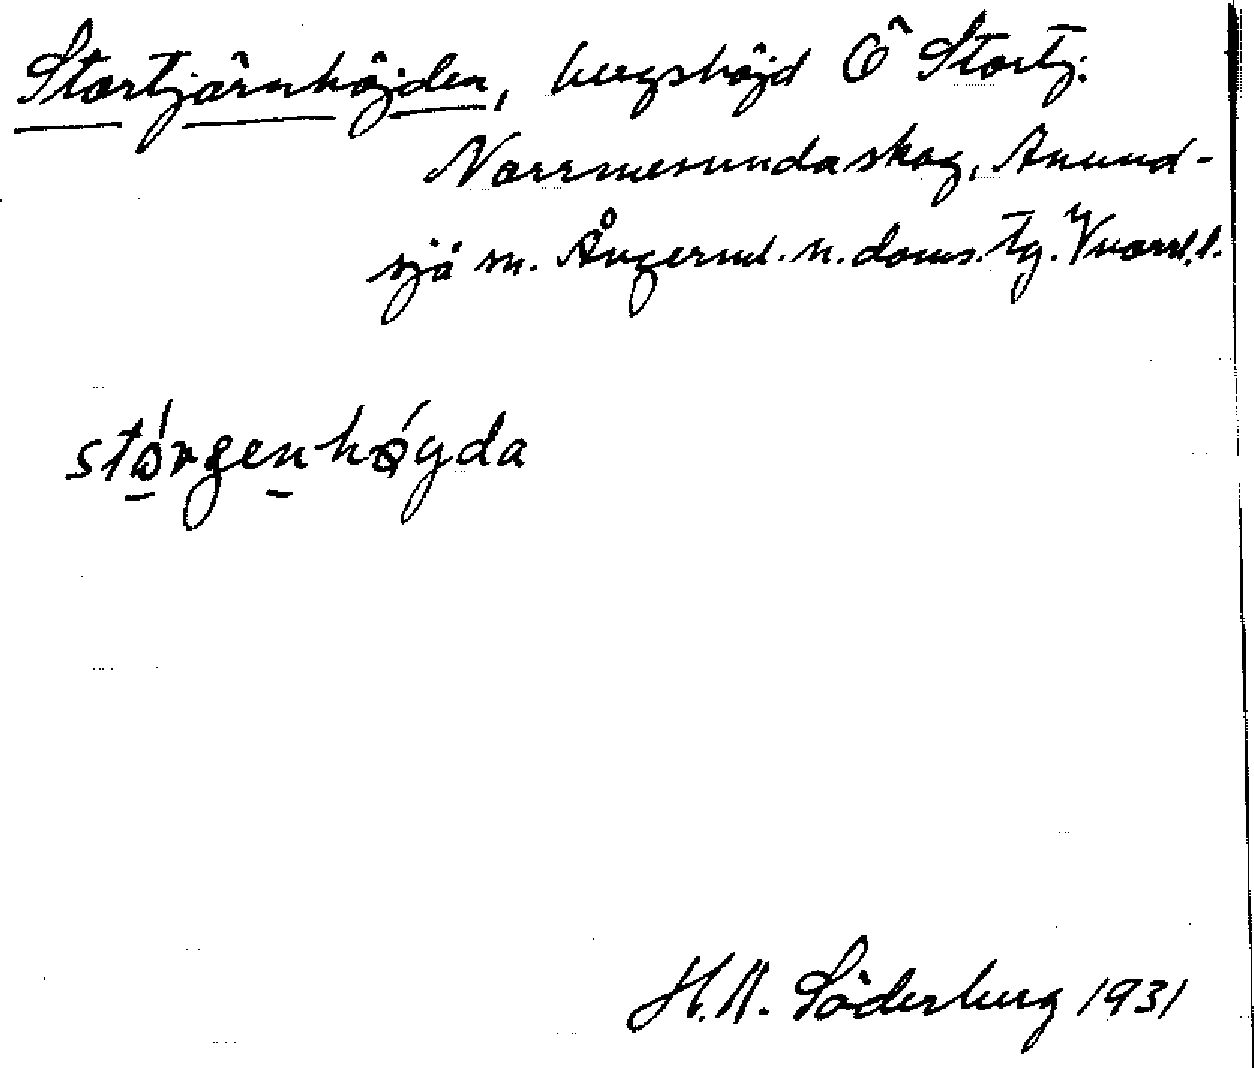 Stortjärnhöjden, bergshöjd Ö Stortj.
Norrmesundaskog, Anund-
sjö sn. Ångerml. n. doms. Tg. Vnorrl. l.
stǿrgenhǿgda
H.A. Söderberg 1931